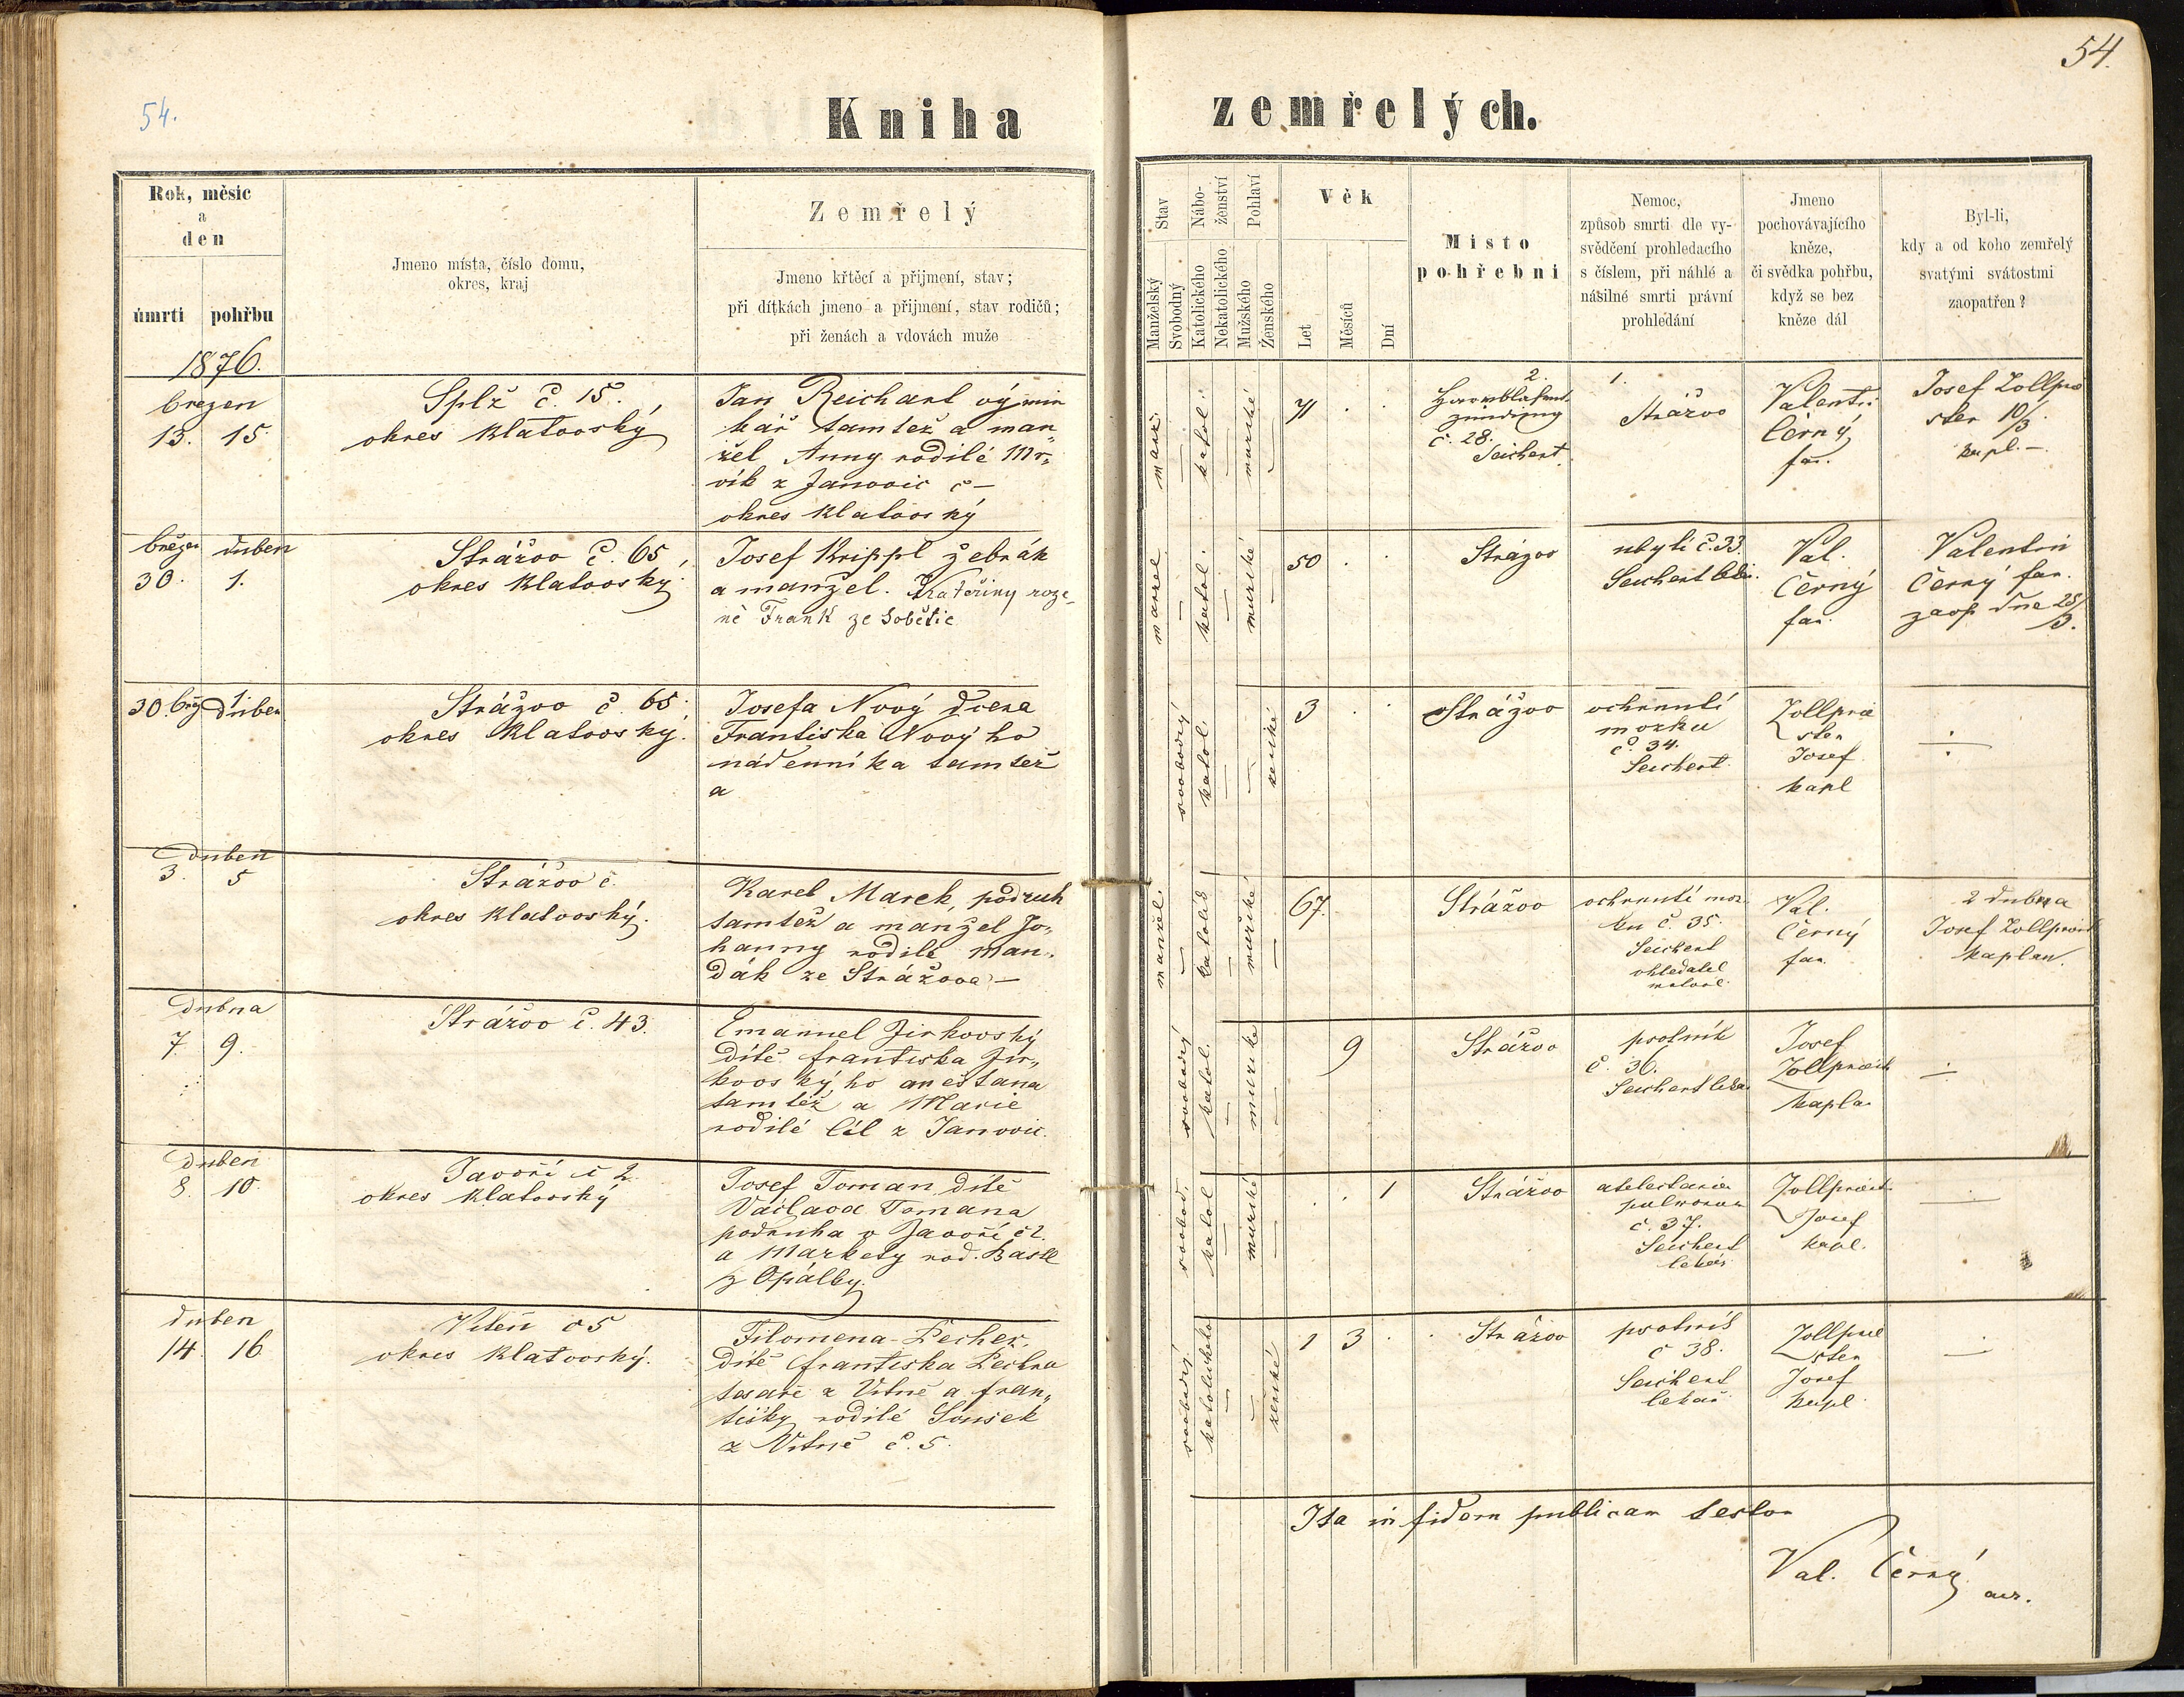 54.
54.
Kniha zemřelých.
Rok, měsíc
a
den
úmrtí pohřbu
Jmeno místa, číslo domu,
okres, kraj
Zemřelý
Jmeno křtěcí a přijmení, stav;
při dítkách jmeno a přijmení, stav rodičů;
při ženách a vdovách muže
Stav
Manželský
Svobodný
Nábo-
ženství
Katolického
Nekatolického
Pohlaví
Mužského
Ženského
Věk
Let
Měsíců
Dní
Místo
pohřební
Nemoc,
způsob smrti dle vy-
svědčení prohledacího
s číslem, při náhlé a
násilné smrti právní
prohledání
Jmeno
pochovávajícího
kněze,
či svědka pohřbu,
když se bez
kněze dál
Byl-li,
kdy a od koho zemřelý
svatými svátostmi
zaopatřen?
1876.
březen
13. 15.
Splž č. 15.,
okres Klatovský
Jan Reichart výmin
kář tamtéž a man„
žel Anny rodilé Mr„
vík z Janovic č —
okres Klatovský
manž.
katol.
mužské
71 . .
2.
č. 28.
Seichert.
1.
Strážov
Valentin
Černý
far.
Josef Zollprie
ster 10/3
kapl. —
březen duben
30. 1.
Strážov č. 65,
okres Klatovský.
Josef Krippl žebrák
a manžel. Kateřiny roze„
né Frank ze Sobětic
manžel
katol.
mužské
50 . .
Strážov
ubytí č. 33.
Seichert lékař.
Val.
Černý
far.
Valentin
Černý far.
zaop dne 28/3.
30. břez 1. duben
Strážov č. 65.
okres Klatovský.
Josefa Nový dcera
Františka Nového
nádenníka tamtéž
a
svobodný
katol.
ženské
3 . .
Strážov
ochrnutí
mozku
č. 34.
Seichert.
Zollprie
ster
Josef
kapl
÷
duben
3. 5
Strážov č.
okres Klatovský.
Karel Marek, podruh
tamtéž a manžel Jo„
hanny rodilé Man„
dák ze Strážova —
manžel.
mužské
67.
Strážov
ochrnutí moz
ku č. 35.
Seichert
ohledatel
Val.
Černý
far.
2 dubna
Josef Zollpriest
kaplan.
dubna
7 9.
Strážov č. 43.
Emanuel Jirkovský
dítě františka Jir„
kovského měštana
tamtéž a Marie
rodilé Cíl z Janovic.
svobodný
katol.
mužské
9
Strážov
psotník
č. 36.
Seichert léka.
Josef
Zollpriest
kapla
÷
duben
8. 10.
Javoří č 2
okres Klatovský
Josef Toman dítě
Václava Tomana
podruha v Javoří č 2.
a Markety rod. Bastl
z Opálky.
svobod.
katol
mužské
. . 1
Strážov
atelectasia
pulmonum
č. 37.
Seichert
lékař
Zollpriest
Josef
kapl.
÷
duben
14. 16.
Viteň č 5
okres Klatovský.
Filomena Pecher
dítě františka Pechra
tesaře z Vitně a fran„
tišky rodilé Soušek
z Vitně č. 5.
svobodný
katolického
ženské
1 3 .
Strážov
psotník
č 38.
Seichert
lékař
Zollprie
ster
Josef
kapl.
÷
Ita in fidem publicam testor
Val. Černý